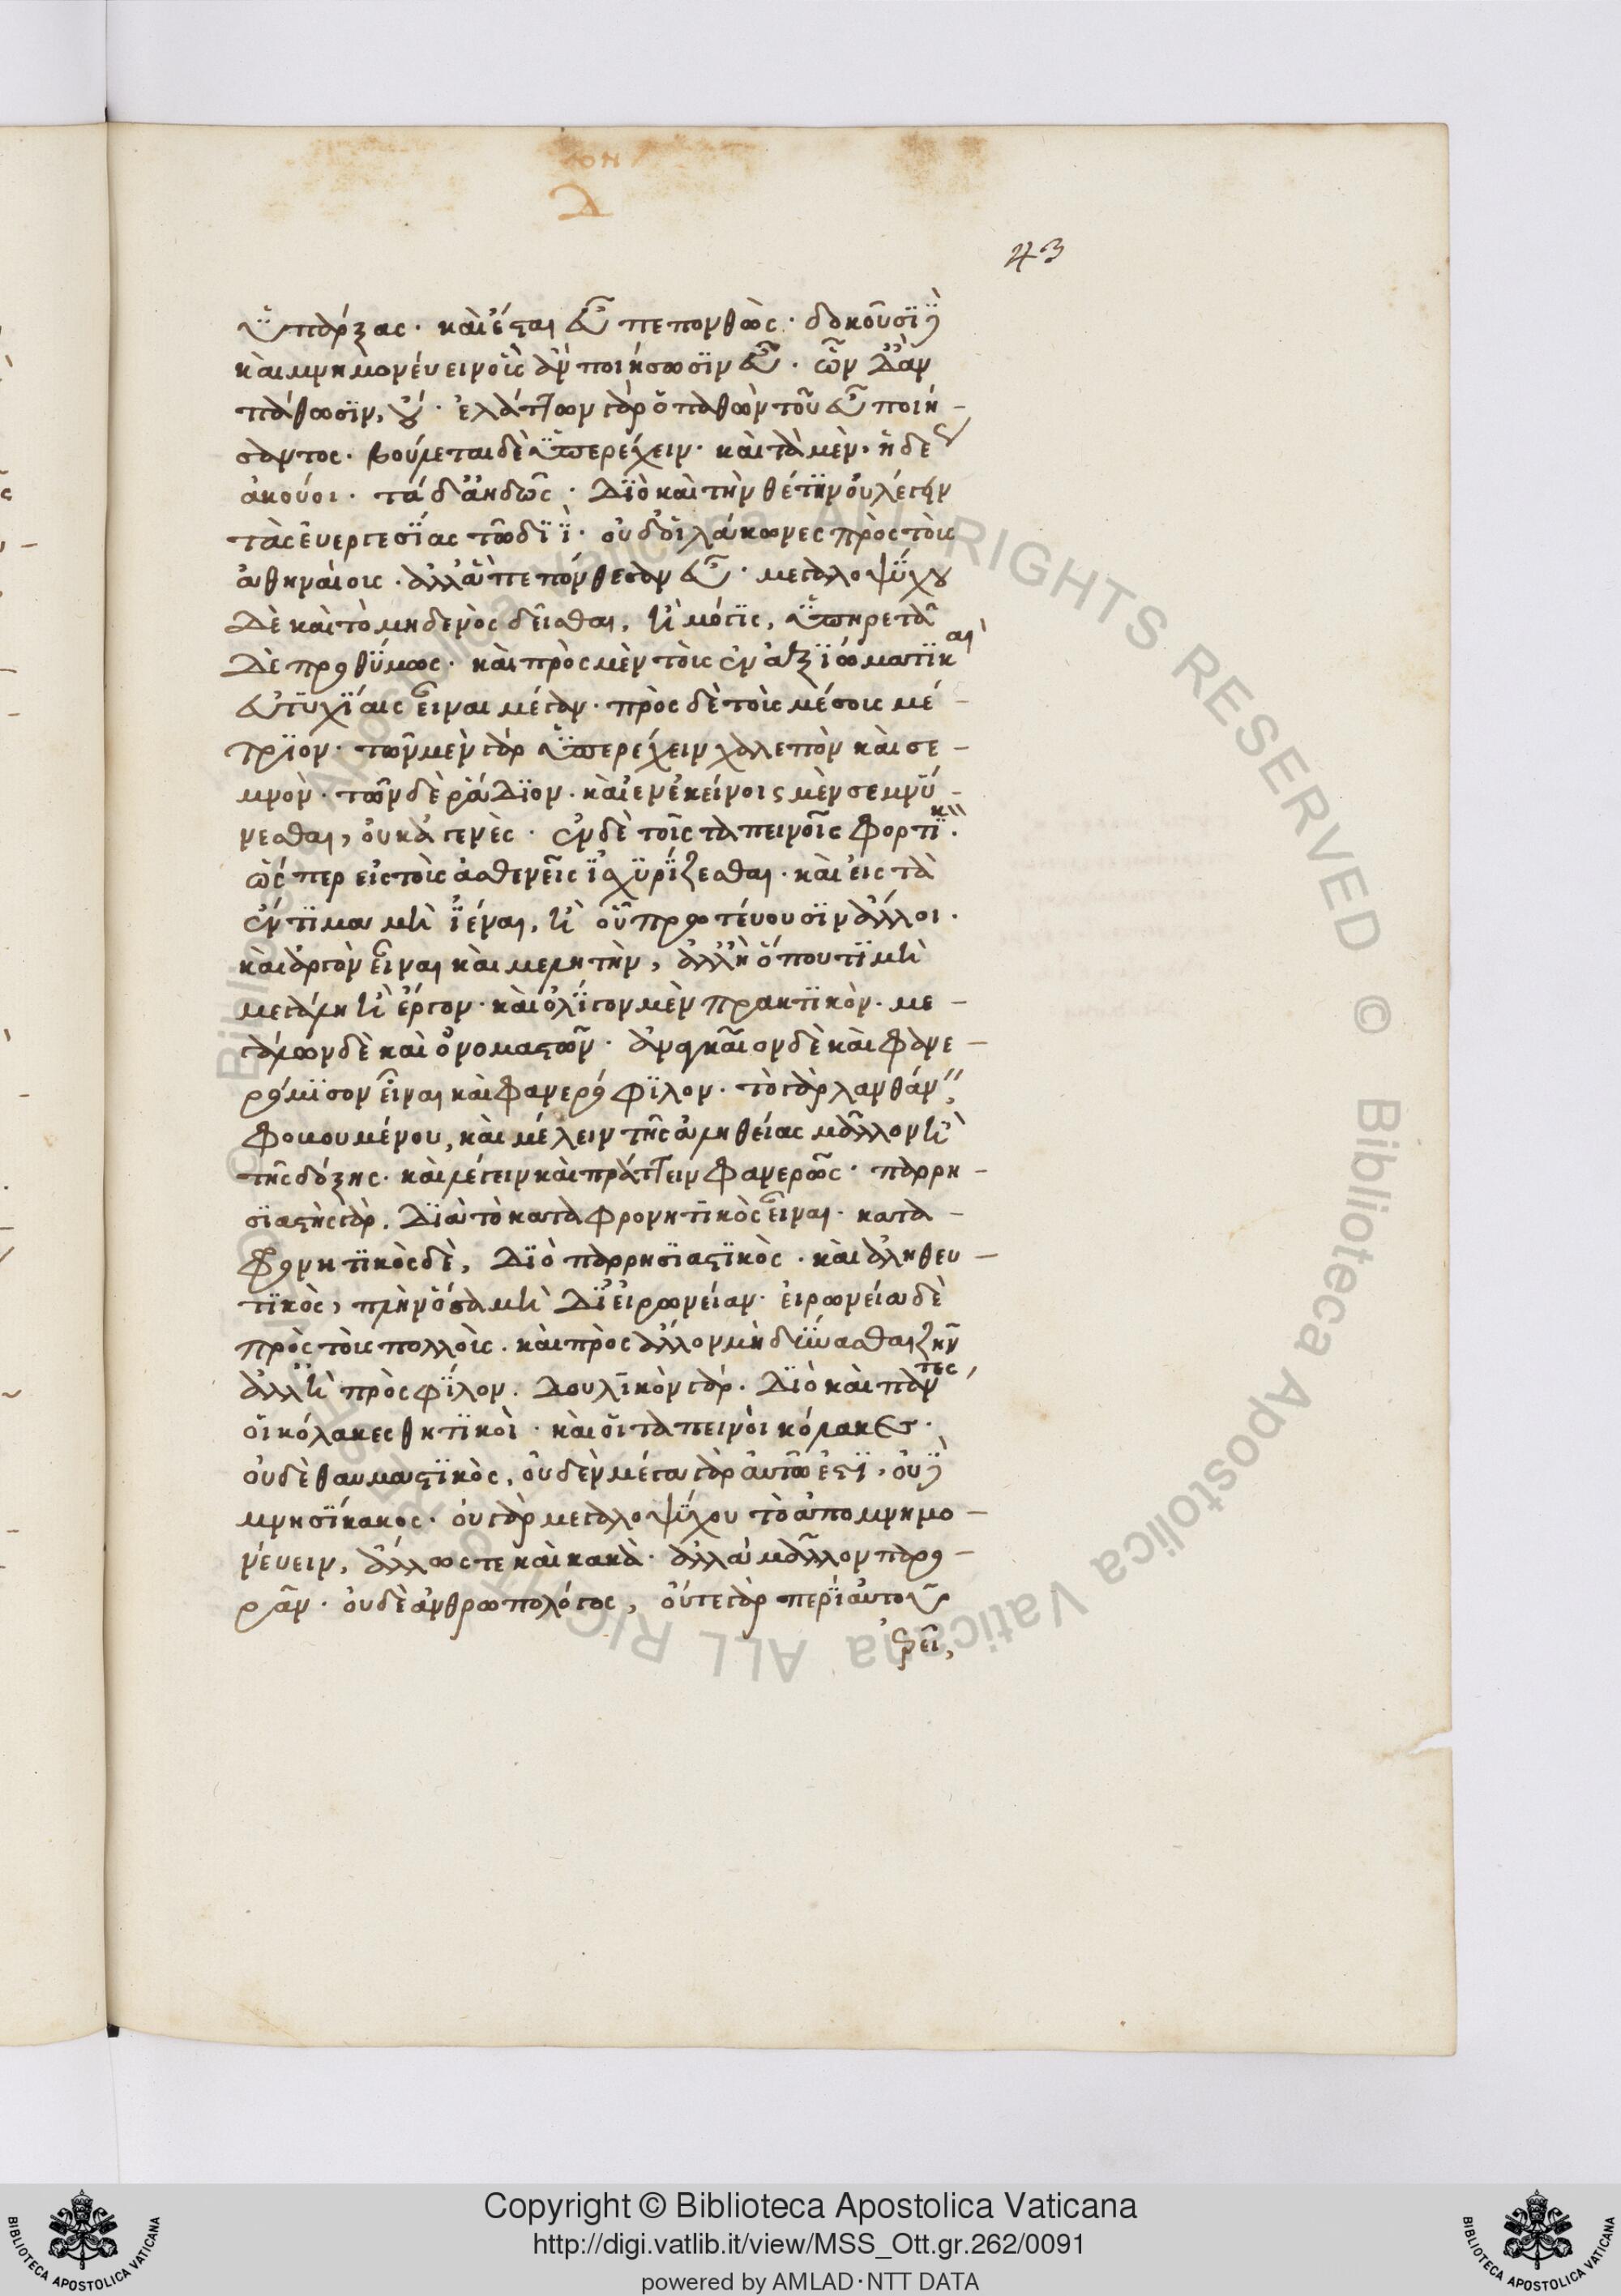 ον
Δ
43
ὑπάρξας· καὶ ἔσται εὖ πεπονθὼς· δοκοῦσι δὲ
καὶ μνημονεύειν οἷς ἂν ποιήσωσιν εὖ· ὧν δ' ἂν
πάθωσιν, οὔ· ἐλάττων γὰρ ὁ παθὼν τοῦ εὖ ποιή-
σαντος· βούλεται δὲ ὑπερέχειν· καὶ τὰ μὲν ἡδέως
ἀκούοι· τὰ δ' ἀηδῶς· Διὸ καὶ τὴν θέτιν οὐ λέγειν
τὰς εὐεργεσίας τῶ διὶ· οὐδ' οἱ λάκωνες πρὸς τοὺς
ἀθηναίους· ἀλλ' ἃ πεπόνθεσαν εὖ· μεγαλοψύχου
Δὲ καὶ τὸ μηδενὸς δεῖσθαι, ἢ μόγις, ὑπηρετᾶν
Δὲ προθύμως· καὶ πρὸς μὲν τοὺς ἐν ἀξιώματι καὶ
εὐτυχίαις εἶναι μέγαν· πρὸς δὲ τοὺς μέσους μέ-
τριον· τῶν μὲν γὰρ ὑπερέχειν χαλεπὸν καὶ σε-
μνόν· τῶν δὲ ῥάδιον· καὶ ἐν ἐκείνοις μὲν σεμνύ-
νεσθαι, οὐκ ἀγενὲς· ἐν δὲ τοῖς ταπεινοῖς φορτικὸν·
ὥσπερ εἰς τοὺς ἀσθενεῖς ἰσχυρίζεσθαι· καὶ εἰς τὰ
ἔντιμα μὴ ἰέναι, ἢ οὗ πρωτεύουσιν ἄλλοι·
καὶ ἀργὸν εἶναι καὶ μελητὴν, ἀλλ' ἢ ὅπου τιμὴ
μεγάλη ἢ ἔργον· καὶ ὀλίγον μὲν πρακτικὸν· με-
γάλων δὲ καὶ ὀνομαστῶν· ἀναγκαῖον δὲ καὶ φανε-
ρόμισον εἶναι καὶ φανερόφιλον· τὸ γὰρ λανθάνειν
φοβουμένου, καὶ μέλειν τῆς ἀληθείας μᾶλλον ἢ
τῆς δόξης· καὶ λέγειν καὶ πράττειν φανερῶς· παρρη-
σιαστὴς γὰρ. Διὰ τὸ καταφρονητικὸς εἶναι· κατα-
φρονητικὸς δὲ, Διὸ παρρησιαστικὸς· καὶ ἀληθευ-
τικὸς, πλὴν ὅσα μὴ Δι' εἰρωνείαν· εἰρωνεία δὲ
πρὸς τοὺς πολλοὺς· καὶ πρὸς ἄλλον μὴ δύνασθαι ζῆν
ἀλλ' ἢ πρὸς φίλον. Δουλικὸν γὰρ. Διὸ καὶ πάντες
οἱ κόλακες θητικοὶ· καὶ οἱ ταπεινοὶ κόλακες·
οὐδὲ θαυμαστικὸς, οὐδὲν μέγα γὰρ αὐτῶ ἐστὶ, οὐδὲ
μνησίκακος· οὐ γὰρ μεγαλοψύχου τὸ ἀπομνημο-
νεύειν, ἄλλως τε καὶ κακὰ· ἀλλὰ μᾶλλον παρο-
ρᾶν· οὐδὲ ἀνθρωπολόγος, οὔτε γὰρ περὶ αὐτοῦ
ἐρεῖ,
© Biblioteca Apostolica Vaticana ALL RIGHTS RESERVED © Biblioteca Apostolica Vaticana ALL RIGHTS RESERVED
Copyright © Biblioteca Apostolica Vaticana
http://digi.vatlib.it/view/MSS_Ott.gr.262/0091
powered by AMLAD·NTT DATA
BIBLIOTECA APOSTOLICA VATICANA
BIBLIOTECA APOSTOLICA VATICANA